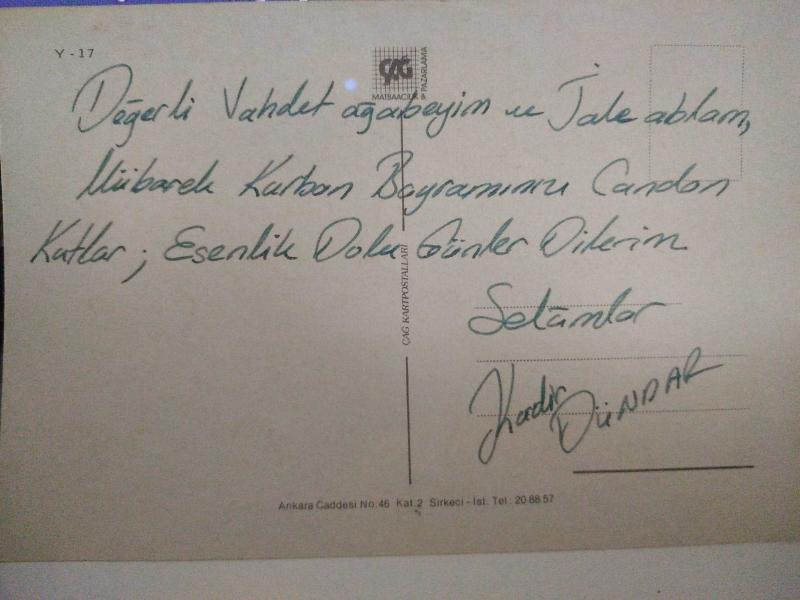 Y - 17
ÇAĞ
MATBAACILIK
& PAZARLAMA
Değerli Vahdet ağabeyim ve Jale ablam,
Mübarek Kurban Bayramınızı Candan
Kutlar; Esenlik Dolu Günler Dilerim
ÇAĞ KARTPOSTALLARI
Selâmlar
Kadir DÜNDAR
Ankara Caddesi No: 46 Kat.2 Sirkeci - İst. Tel: 20 88 57